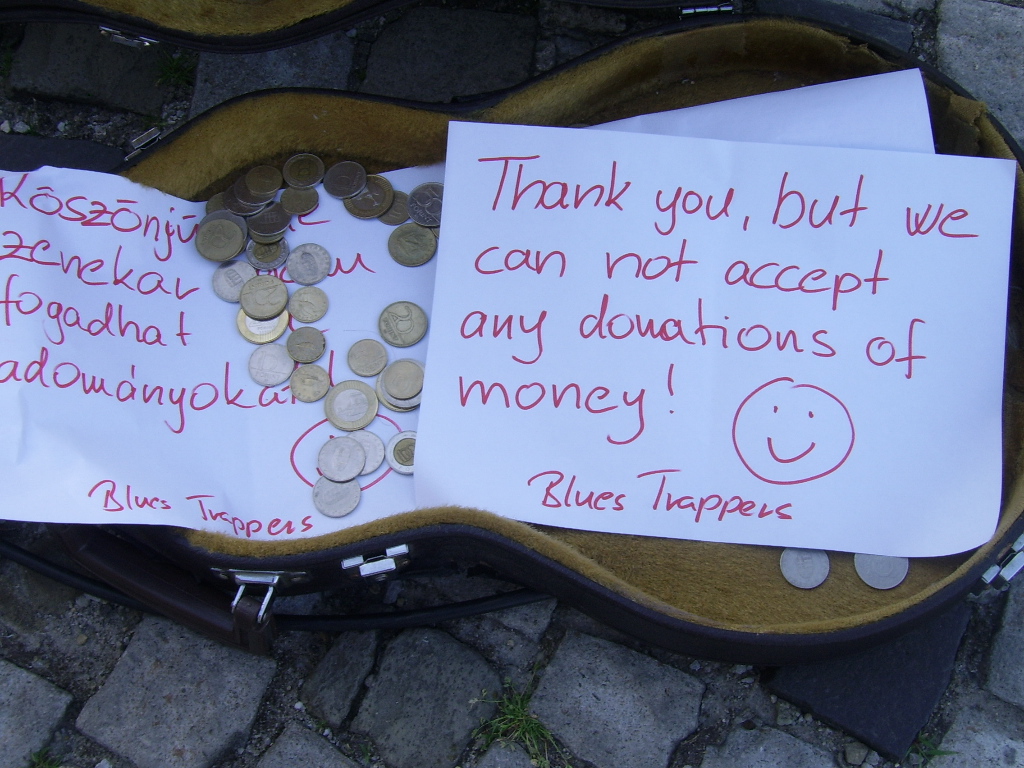 Kōszōnjü
zenekar
fogadhat
adományokat
Blues Trappers
Thank you, but we
can not accept
any donations of
money!
Blues Trappers